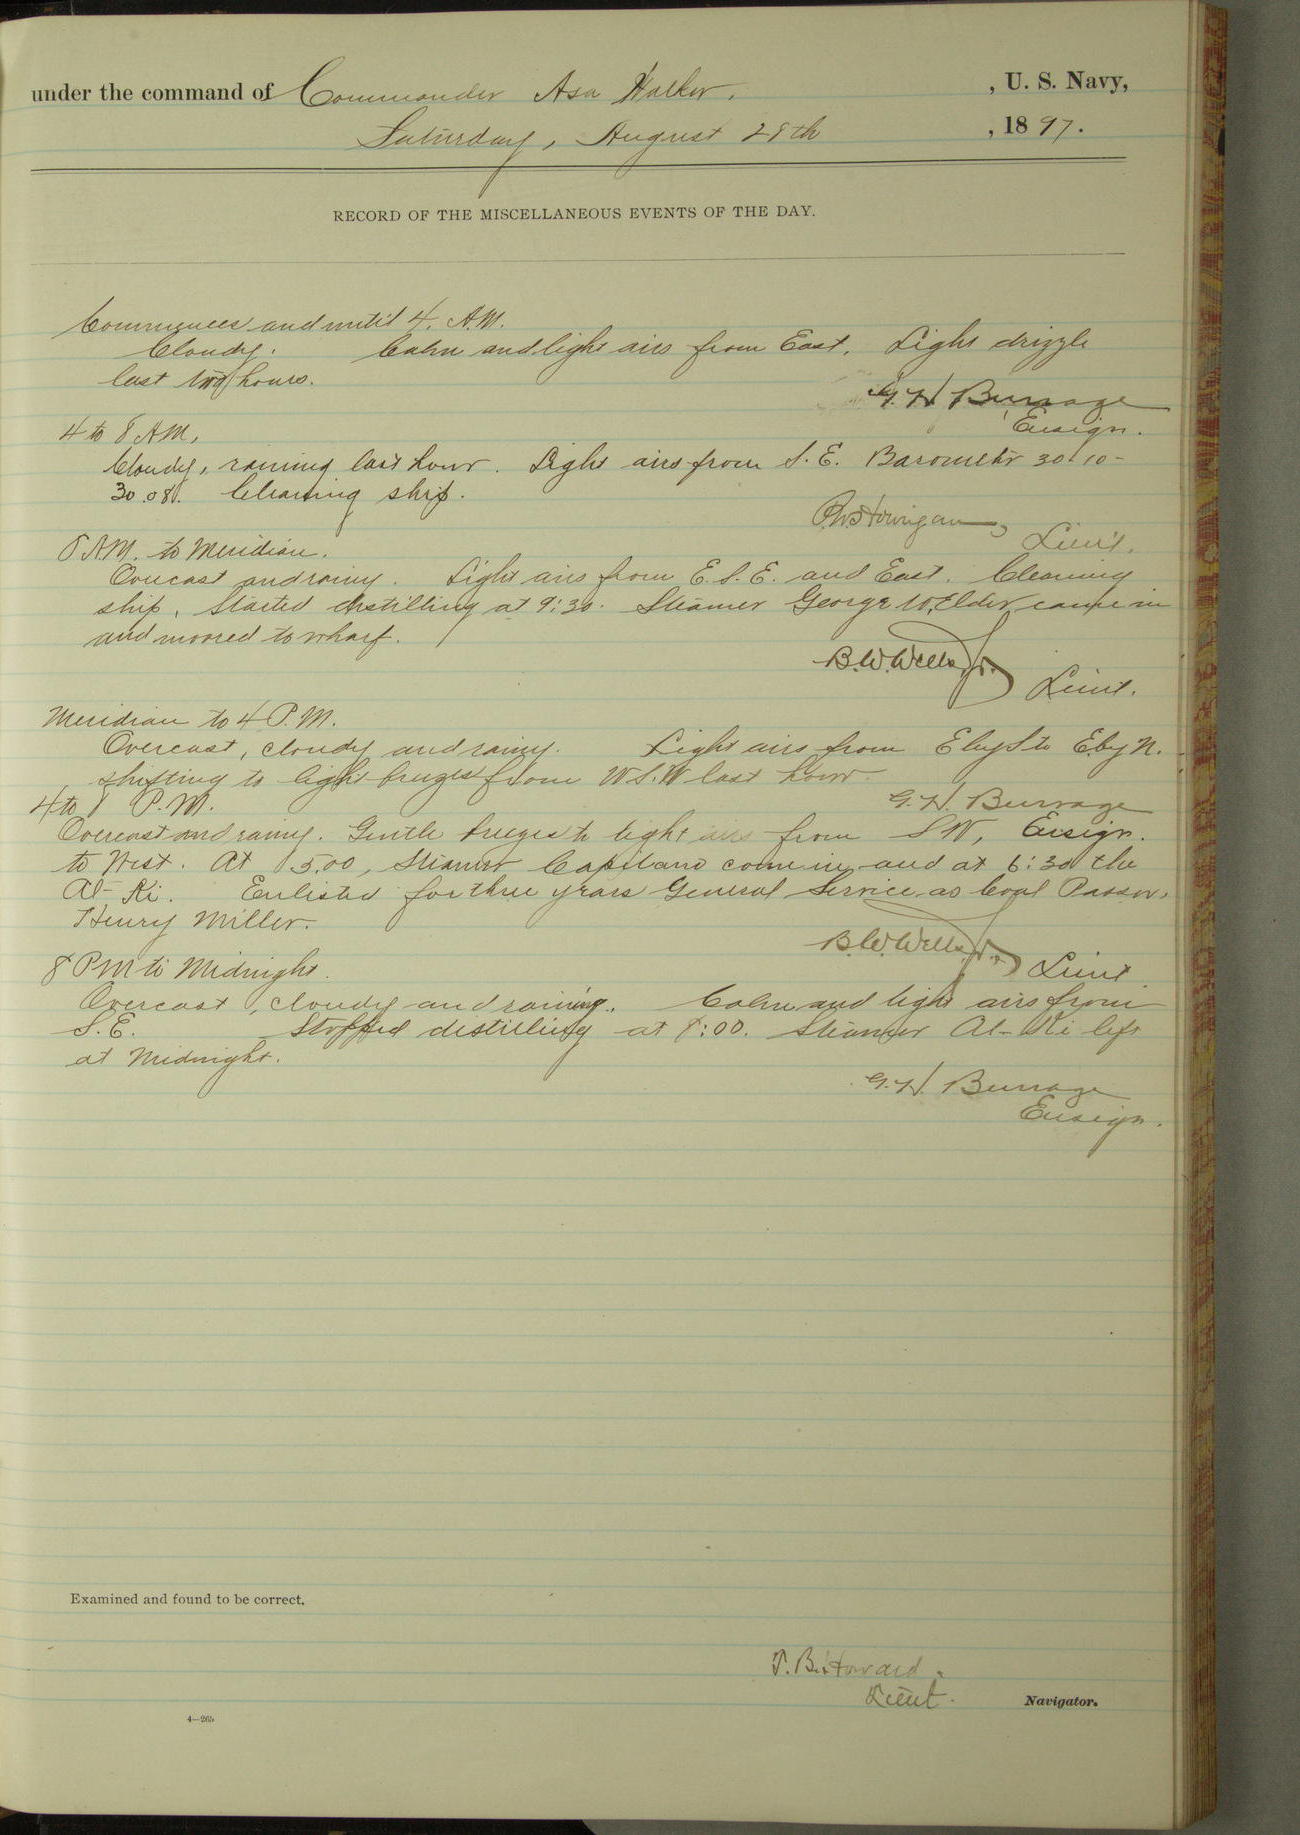 under the command of Commander Asa Walker, , U. S. Navy,
Saturday, August 28th , 1897.
RECORD OF THE MISCELLANEOUS EVENTS OF THE DAY.
Commences and until 4. A.M.
Cloudy. Calm and light airs from East. Light drizzle
last two hours.
G. H. Burrage
Ensign.
4 to 8 A.M.
Cloudy, raining last hour. Light airs from S.E. Barometer 30.10-
30.08. Cleaning ship.
Lieut.
8 A.M. to Meridian.
Overcast and rainy. Light airs from E.S.E. and East. Cleaning
ship. Started distilling at 9:30. Steamer George W. Elder came in
and moored to wharf.
B. W. Wells, Jr.
Lieut.
Meridian to 4 P.M.
Overcast, cloudy and rainy. Light airs from E by S to E by N.
shifting to light breezes from W.S.W last hour.
G. H. Burrage
4 to 8 P.M.
Overcast and rainy. Gentle breezes to light airs from SW, Ensign.
to West. At 5.00, Steamer Capilano came in and at 6:30 the
Al-Ki. Enlisted for three years General Service as Coal Passer,
Henry Miller.
B. W. Wells, Jr.
8 PM to Midnight. Lieut
Overcast, cloudy and raining. Calm and light airs from
S.E. Stopped distilling at 8:00. Steamer Al-Ki left
at Midnight.
G. H. Burrage
Ensign.
Examined and found to be correct.
T. B. Howard.
Lieut. Navigator.
4—265